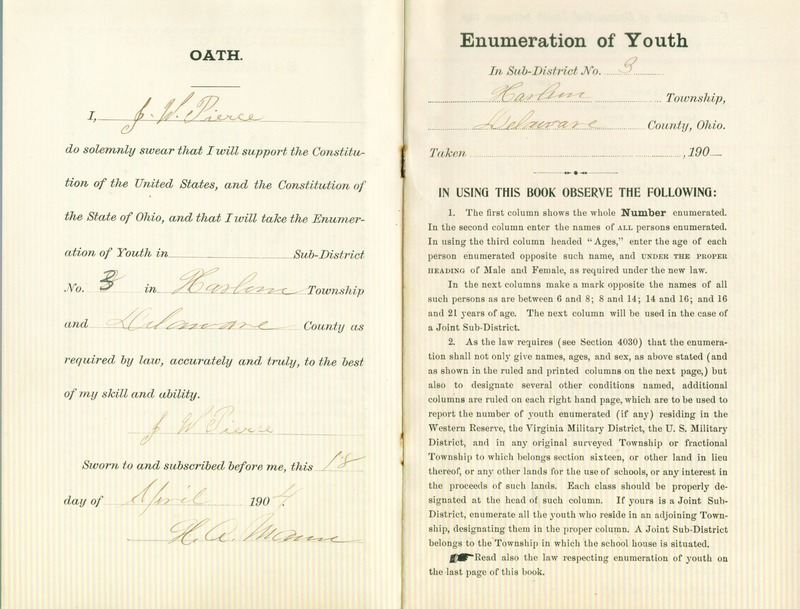 OATH.
I, J. W. Pierce
do solemnly swear that I will support the Constitu-
tion of the United States, and the Constitution of
the State of Ohio, and that I will take the Enumer-
ation of Youth in Sub-District
No. 3 in Harlem Township
and Delaware County as
required by law, accurately and truly, to the best
of my skill and ability.
J W Pierce
Sworn to and subscribed before me, this 18
day of April 1904.
H. A. Mann
Enumeration of Youth
In Sub-District No. 3
Harlem Township,
Delaware County, Ohio.
Taken , 190
IN USING THIS BOOK OBSERVE THE FOLLOWING:
1. The first column shows the whole Number enumerated.
In the second column enter the names of ALL persons enumerated.
In using the third column headed "Ages," enter the age of each
person enumerated opposite such name, and UNDER THE PROPER
HEADING of Male and Female, as required under the new law.
In the next columns make a mark opposite the names of all
such persons as are between 6 and 8; 8 and 14; 14 and 16; and 16
and 21 years of age. The next column will be used in the case of
a Joint Sub-District.
2. As the law requires (see Section 4030) that the enumera-
tion shall not only give names, ages, and sex, as above stated (and
as shown in the ruled and printed columns on the next page,) but
also to designate several other conditions named, additional
columns are ruled on each right hand page, which are to be used to
report the number of youth enumerated (if any) residing in the
Western Reserve, the Virginia Military District, the U. S. Military
District, and in any original surveyed Township or fractional
Township to which belongs section sixteen, or other land in lieu
thereof, or any other lands for the use of schools, or any interest in
the proceeds of such lands. Each class should be properly de-
signated at the head of such column. If yours is a Joint Sub-
District, enumerate all the youth who reside in an adjoining Town-
ship, designating them in the proper column. A Joint Sub-District
belongs to the Township in which the school house is situated.
Read also the law respecting enumeration of youth on
the last page of this book.